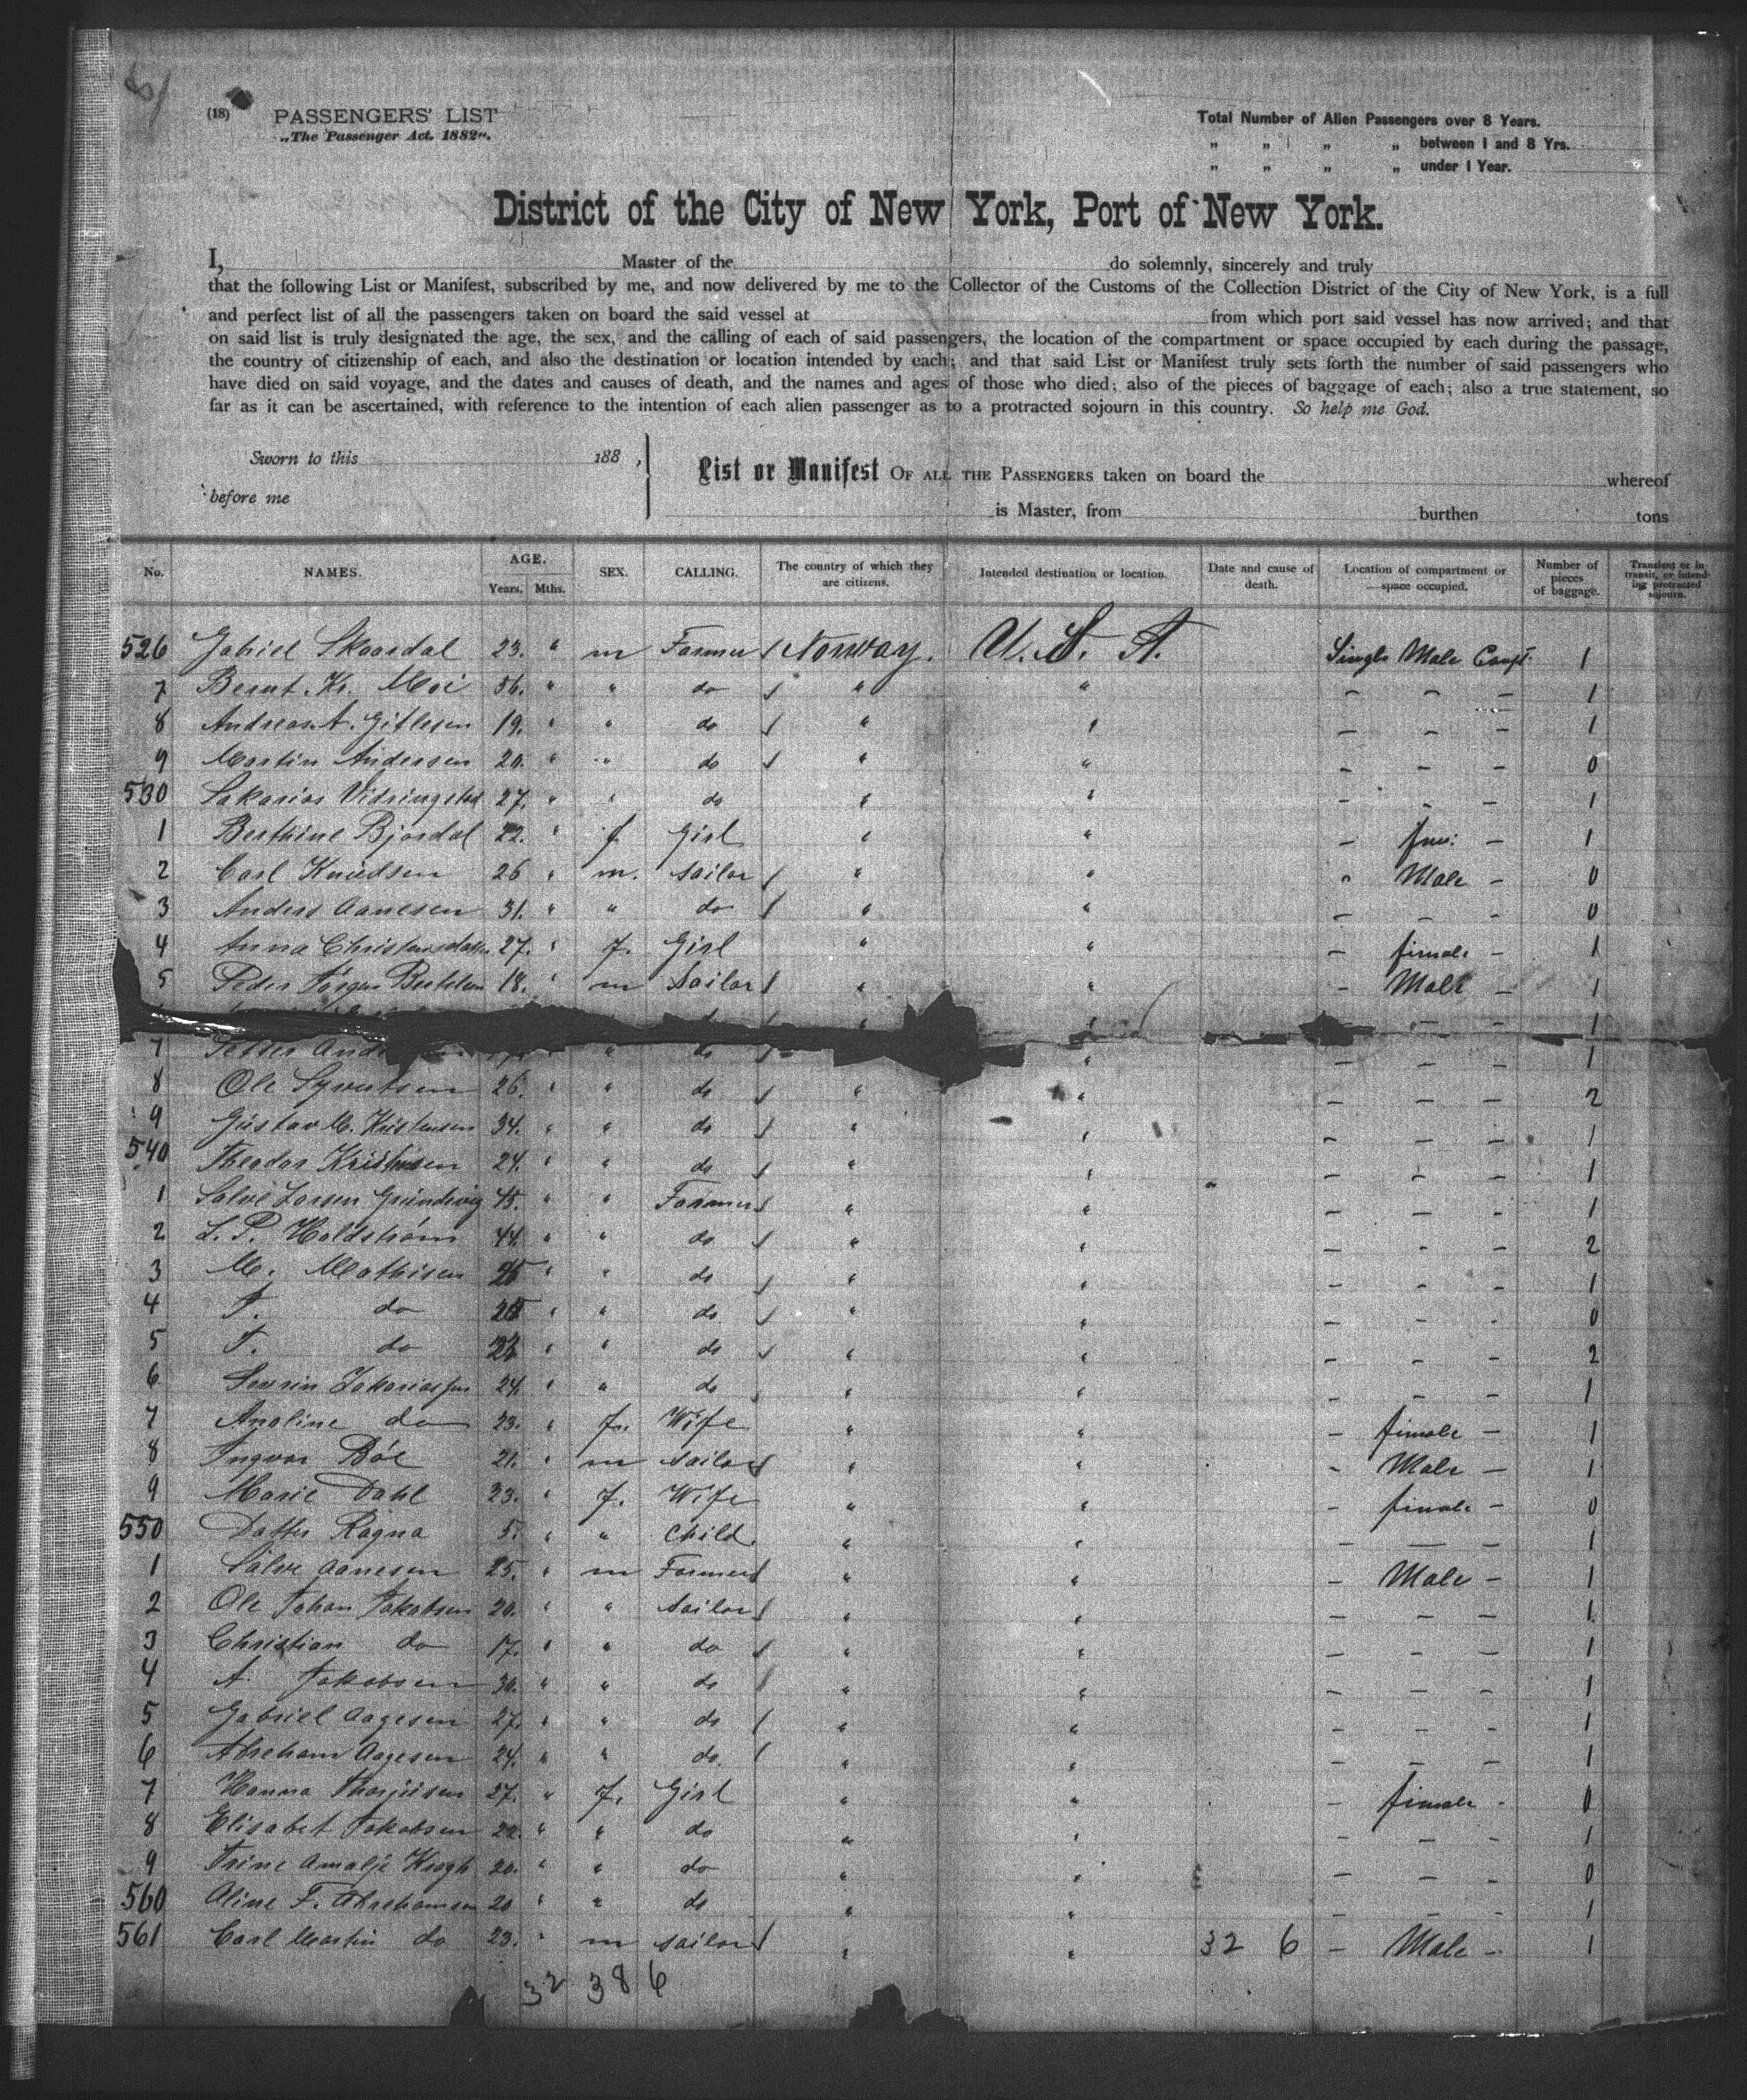 (18) PASSENGERS' LIST
„The Passenger Act, 1882“.
Total Number of Alien Passengers over 8 Years.
„ „ „ „ between 1 and 8 Yrs.
„ „ „ „ under 1 Year.
District of the City of New York, Port of New York.
I, Master of the do solemnly, sincerely and truly
that the following List or Manifest, subscribed by me, and now delivered by me to the Collector of the Customs of the Collection District of the City of New York, is a full
and perfect list of all the passengers taken on board the said vessel at from which port said vessel has now arrived; and that
on said list is truly designated the age, the sex, and the calling of each of said passengers, the location of the compartment or space occupied by each during the passage,
the country of citizenship of each, and also the destination or location intended by each; and that said List or Manifest truly sets forth the number of said passengers who
have died on said voyage, and the dates and causes of death, and the names and ages of those who died; also of the pieces of baggage of each; also a true statement, so
far as it can be ascertained, with reference to the intention of each alien passenger as to a protracted sojourn in this country. So help me God.
Sworn to this 188 ,
before me
List or Manifest OF ALL THE PASSENGERS taken on board the whereof
is Master, from burthen tons
No. NAMES. AGE. Years. Mths. SEX. CALLING. The country of which they are citizens. Intended destination or location. Date and cause of death. Location of compartment or space occupied. Number of pieces of baggage. Transient or in transit, or intending protracted sojourn.
526 Gabriel Skaardal 23. " m Farmer / Norway. U. S. A. Single Male Compt. 1
7 Bernt Kr. Moi 36. " " do / " " – – – 1
8 Andreas A. Gitlesen 19. " " do / " " – – – 1
9 Martin Andersen 20. " " do / " " – – – 0
530 Sakarias 27. " " do " " – – – 1
1 Berthine Bjordal 22. " f Girl " " – fem: – 1
2 Carl Knudsen 26 " m. Sailor / " " " Male – 0
3 Anders Aanesen 31. " " do / " " – – – 0
4 Anna 27. " f. Girl " " – female – 1
5 Peder 18. " m Sailor / " " – Male – 1
do / " " – – – 1
7 Petter " " do / " – – – 1
8 Ole Syvertsen 26. " " do / " " – – – 2
9 Gustav M. Kristensen 34. " " do / " " – – – 1
540 Theodor Kristensen 24. " " do / " " – – – 1
1 Salve Larsen 45. " " Farmer / " " – – – 1
2 L. P. Holdstrøm 44. " " do / " " – – – 2
3 M. Mathisen " " do / " " – – – 1
4 T. do " " do / " " – – – 0
5 T. do " " do / " " – – – 2
6 Sevrin 24 " " do / " " – – – 1
7 Analine do 23. " f. Wife " " – female – 1
8 Ingvar Bøe 21. " m Sailor / " " – Male – 1
9 Marie Dahl 23. " f. Wife " " – female – 0
550 Datter Ragna 5. " " Child. " " – – – 1
1 Salve Aanesen 25. " m Farmer / " " – Male – 1
2 Ole Johan Jakobsen 20. " " Sailor / " " – – – 1
3 Christian do 17. " " do / " " – – – 1
4 A. Jakobsen 30. " " do / " " – – – 1
5 Gabriel Aagesen 27. " " do / " " – – – 1
6 Abraham Aagesen 24. " " do. / " " – – – 1
7 Hanna 27. " f. Girl " " – female – 0
8 Elisabet Jakobsen 22. " " do " " – – – 1
9 Trine Amalje Krogh 20. " " do " " – – – 0
560 Aline F. Abrahamsen 20 " " do " " – – – 1
561 Carl Martin do 23. " m Sailor / " " 32 6 – Male – 1
32 38 6